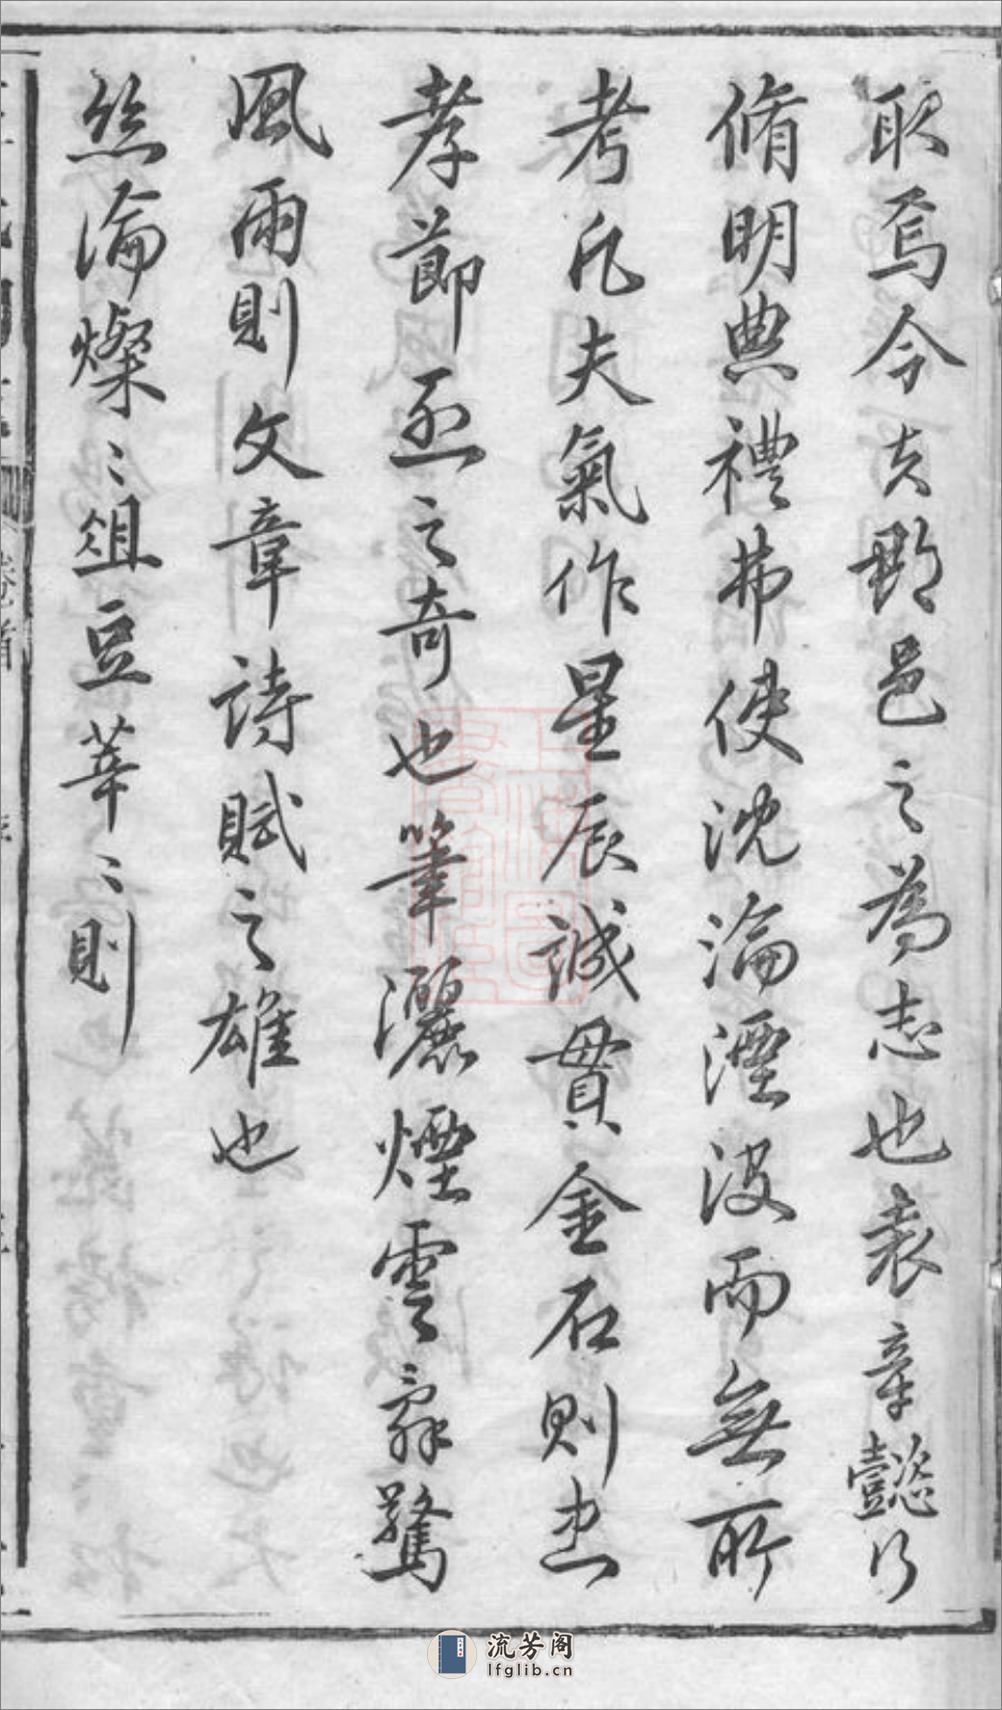 取焉今夫郡邑之為志也表章懿行
脩明典禮弗使沈淪湮没而無所
考凡夫氣作星辰誠貫金石則忠
孝節烈之奇也筆灑煙雲辭驚
風雨則文章詩賦之雄也
絲淪燦〻俎豆莘〻則
卷之首
流芳阁
lfglib.cn